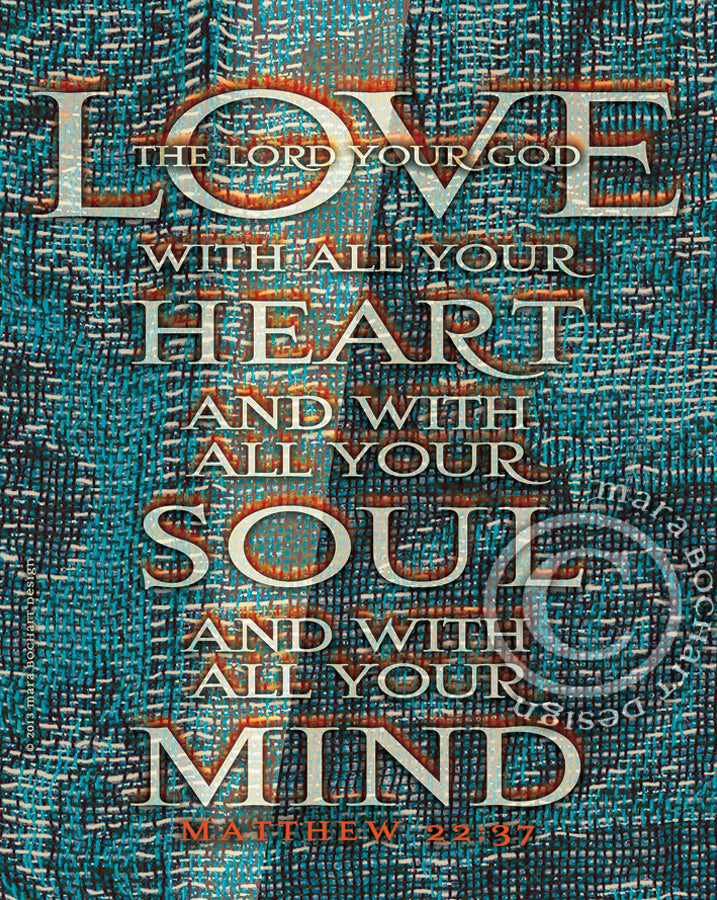 LOVE
THE LORD YOUR GOD
WITH ALL YOUR
HEART
AND WITH
ALL YOUR
SOUL
AND WITH
ALL YOUR
MIND
MATTHEW 22:37
© 2013 mara BOCHart Design
mara BOCHart Design
©